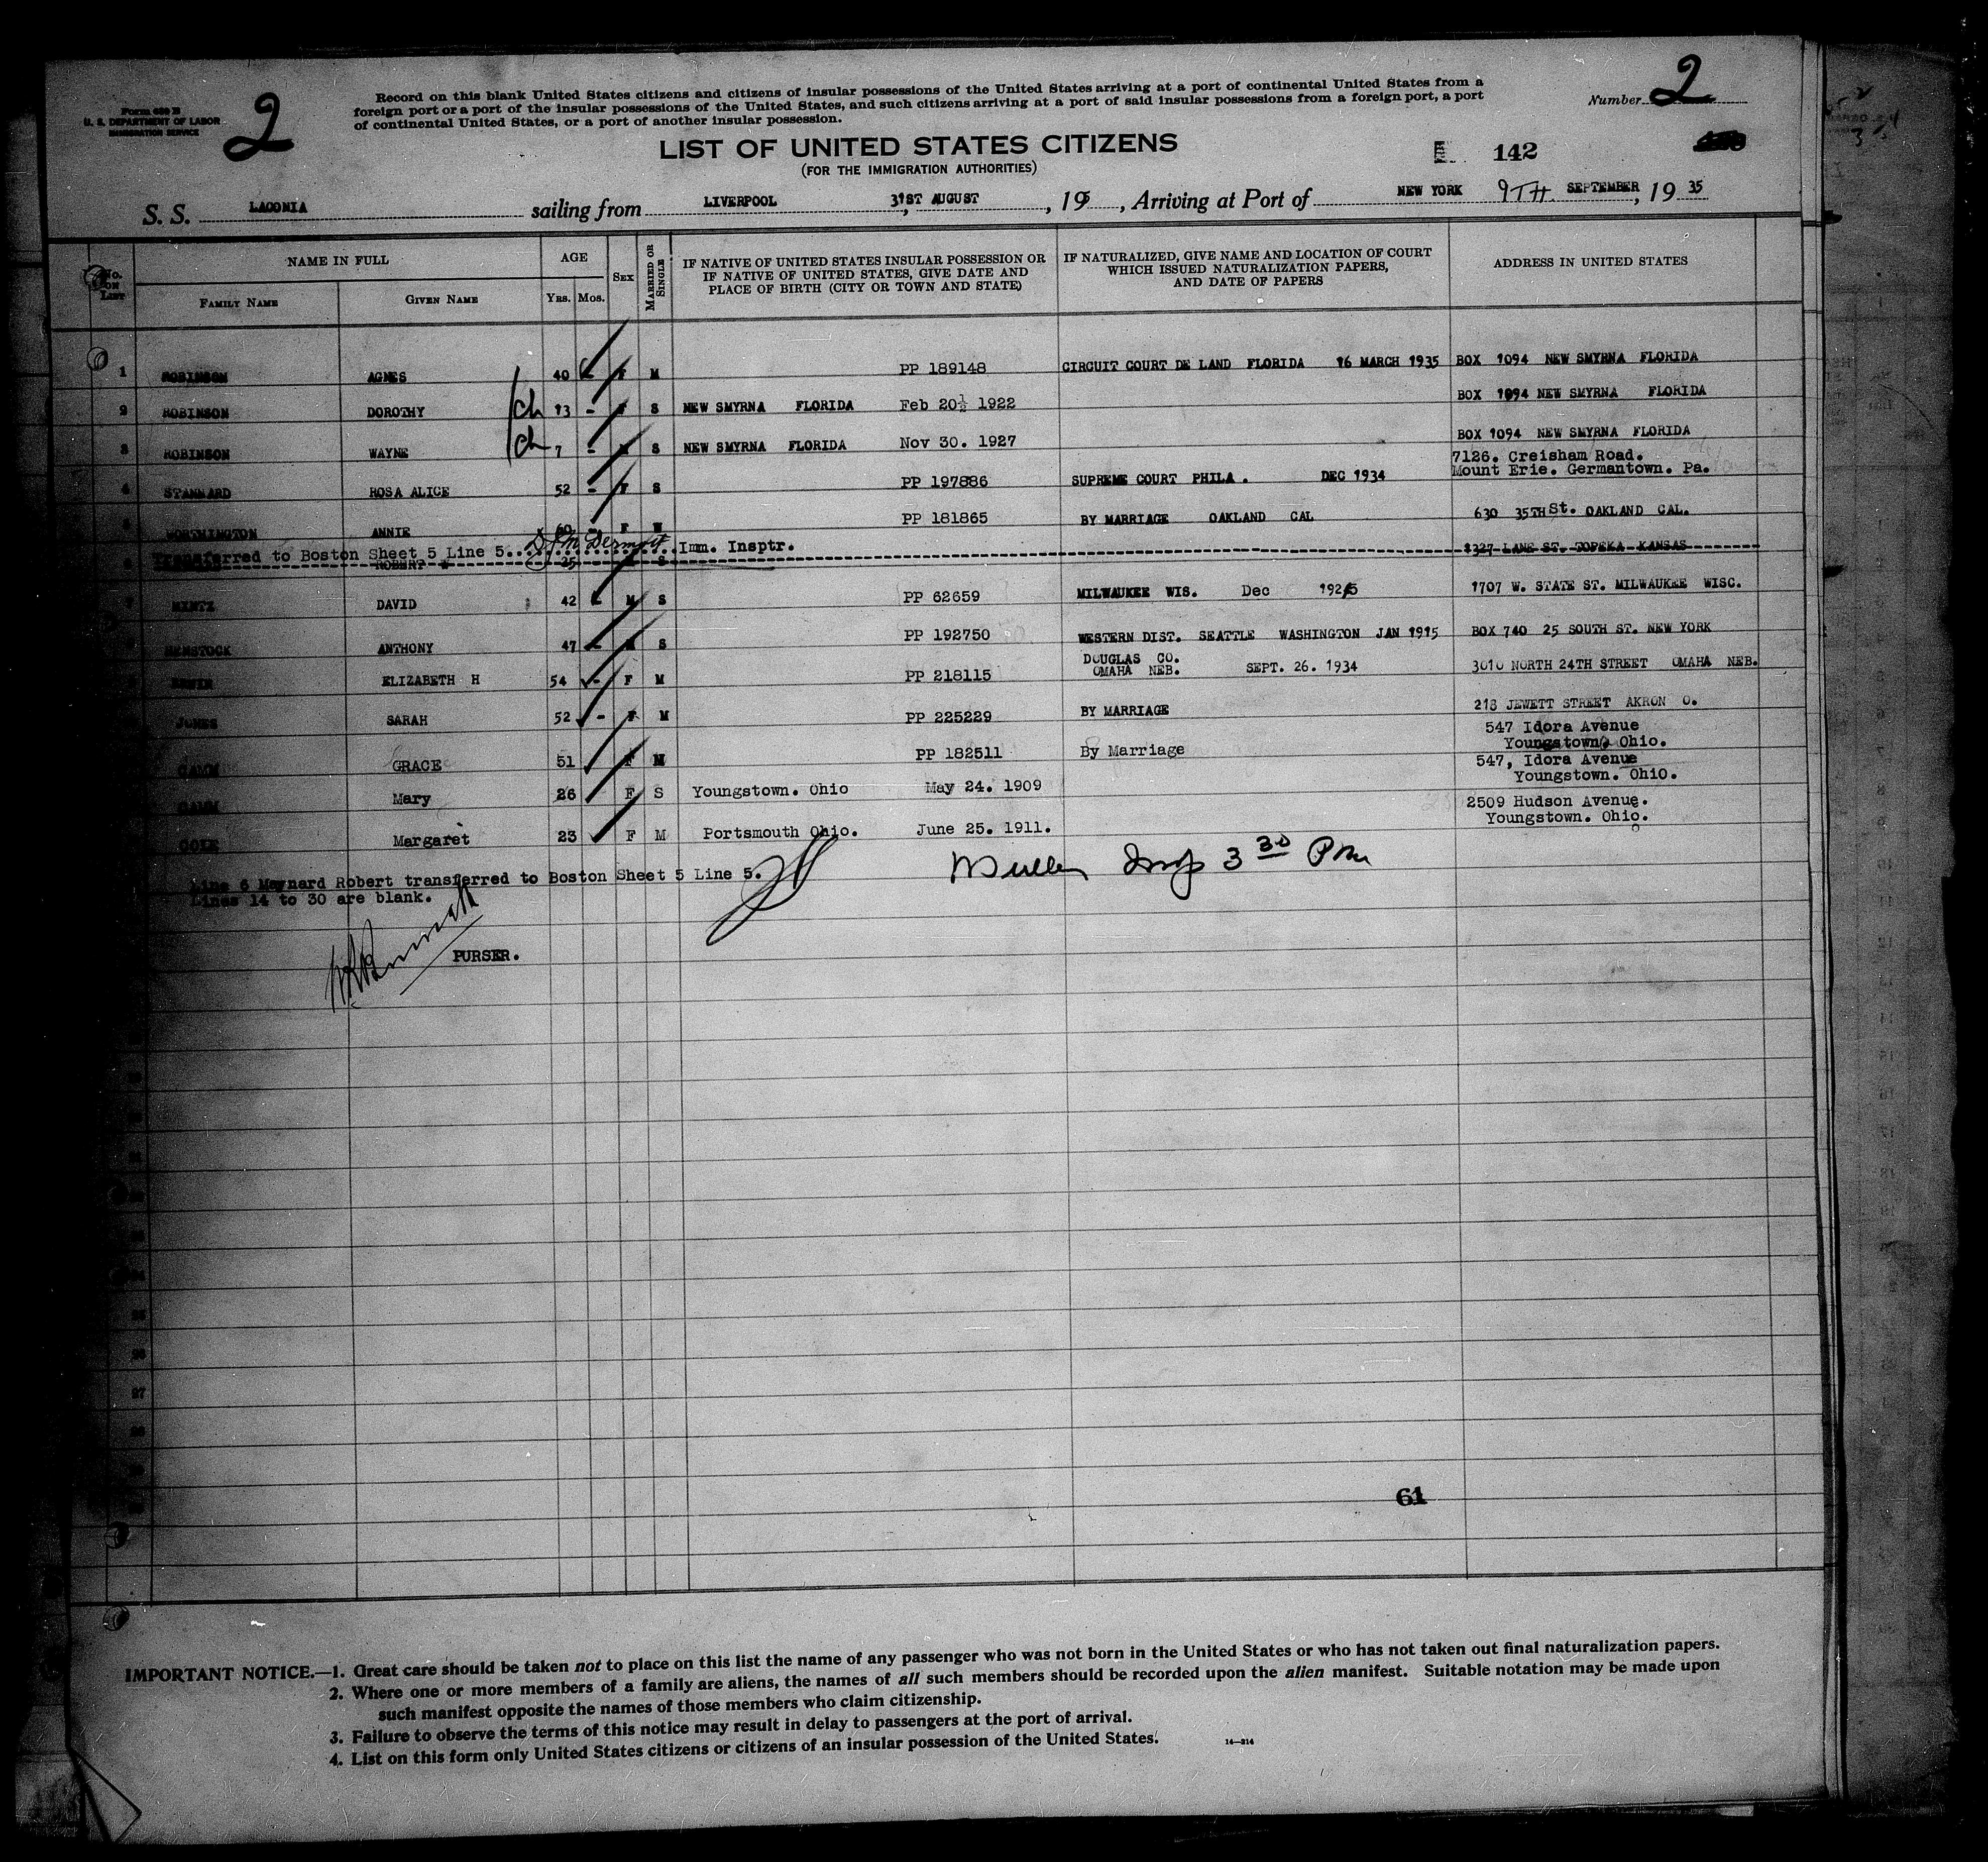 Form 630 B
U. S. DEPARTMENT OF LABOR
IMMIGRATION SERVICE
2
Record on this blank United States citizens and citizens of insular possessions of the United States arriving at a port of continental United States from a
foreign port or a port of the insular possessions of the United States, and such citizens arriving at a port of said insular possessions from a foreign port, a port
of continental United States, or a port of another insular possession.
Number 2
LIST OF UNITED STATES CITIZENS
(FOR THE IMMIGRATION AUTHORITIES)
142
S. S. LACONIA sailing from LIVERPOOL 31ST AUGUST, 19, Arriving at Port of NEW YORK 9TH SEPTEMBER, 19 35
No. ON LIST
NAME IN FULL
FAMILY NAME
GIVEN NAME
AGE
YRS. MOS.
SEX
MARRIED OR SINGLE
IF NATIVE OF UNITED STATES INSULAR POSSESSION OR
IF NATIVE OF UNITED STATES, GIVE DATE AND
PLACE OF BIRTH (CITY OR TOWN AND STATE)
IF NATURALIZED, GIVE NAME AND LOCATION OF COURT
WHICH ISSUED NATURALIZATION PAPERS,
AND DATE OF PAPERS
ADDRESS IN UNITED STATES
1 ROBINSON AGNES 40 - F M PP 189148 CIRCUIT COURT DE LAND FLORIDA 16 MARCH 1935 BOX 1094 NEW SMYRNA FLORIDA
2 ROBINSON DOROTHY ch 13 - F S NEW SMYRNA FLORIDA Feb 20 1922 BOX 1094 NEW SMYRNA FLORIDA
3 ROBINSON WAYNE ch 7 - M S NEW SMYRNA FLORIDA Nov 30. 1927 BOX 1094 NEW SMYRNA FLORIDA
7126. Creisham Road.
4 STANNARD ROSA ALICE 52 - F S PP 197886 SUPREME COURT PHILA. DEC 1934 Mount Erie. Germantown. Pa.
5 WORTHINGTON ANNIE 60 - F PP 181865 BY MARRIAGE OAKLAND CAL 630 35TH St. OAKLAND CAL.
Transferred to Boston Sheet 5 Line 5. Imm. Insptr.
6 ROBERT W 25 - S 1327 LANE ST. TOPEKA KANSAS
7 MINTZ DAVID 42 - M S PP 62659 MILWAUKEE WIS. Dec 1925 1707 W. STATE ST. MILWAUKEE WISC.
HENSTOCK ANTHONY 47 - M S PP 192750 WESTERN DIST. SEATTLE WASHINGTON JAN 1915 BOX 740 25 SOUTH ST. NEW YORK
DOUGLAS CO.
ELIZABETH H 54 - F M PP 218115 OMAHA NEB. SEPT. 26. 1934 3010 NORTH 24TH STREET OMAHA NEB.
JONES SARAH 52 - F M PP 225229 BY MARRIAGE 218 JEWETT STREET AKRON O.
547 Idora Avenue
Youngstown. Ohio.
GAMM GRACE 51 F M PP 182511 By Marriage
547, Idora Avenue
Youngstown. Ohio.
GAMM Mary 26 F S Youngstown. Ohio May 24. 1909
2509 Hudson Avenue.
Youngstown. Ohio.
COLE Margaret 23 F M Portsmouth Ohio. June 25. 1911.
Line 6 Maynard Robert transferred to Boston Sheet 5 Line 5.
Lines 14 to 30 are blank.
Insp 3 30 Pm
PURSER.
61
IMPORTANT NOTICE.—1. Great care should be taken not to place on this list the name of any passenger who was not born in the United States or who has not taken out final naturalization papers.
2. Where one or more members of a family are aliens, the names of all such members should be recorded upon the alien manifest. Suitable notation may be made upon
such manifest opposite the names of those members who claim citizenship.
3. Failure to observe the terms of this notice may result in delay to passengers at the port of arrival.
4. List on this form only United States citizens or citizens of an insular possession of the United States.
14—214